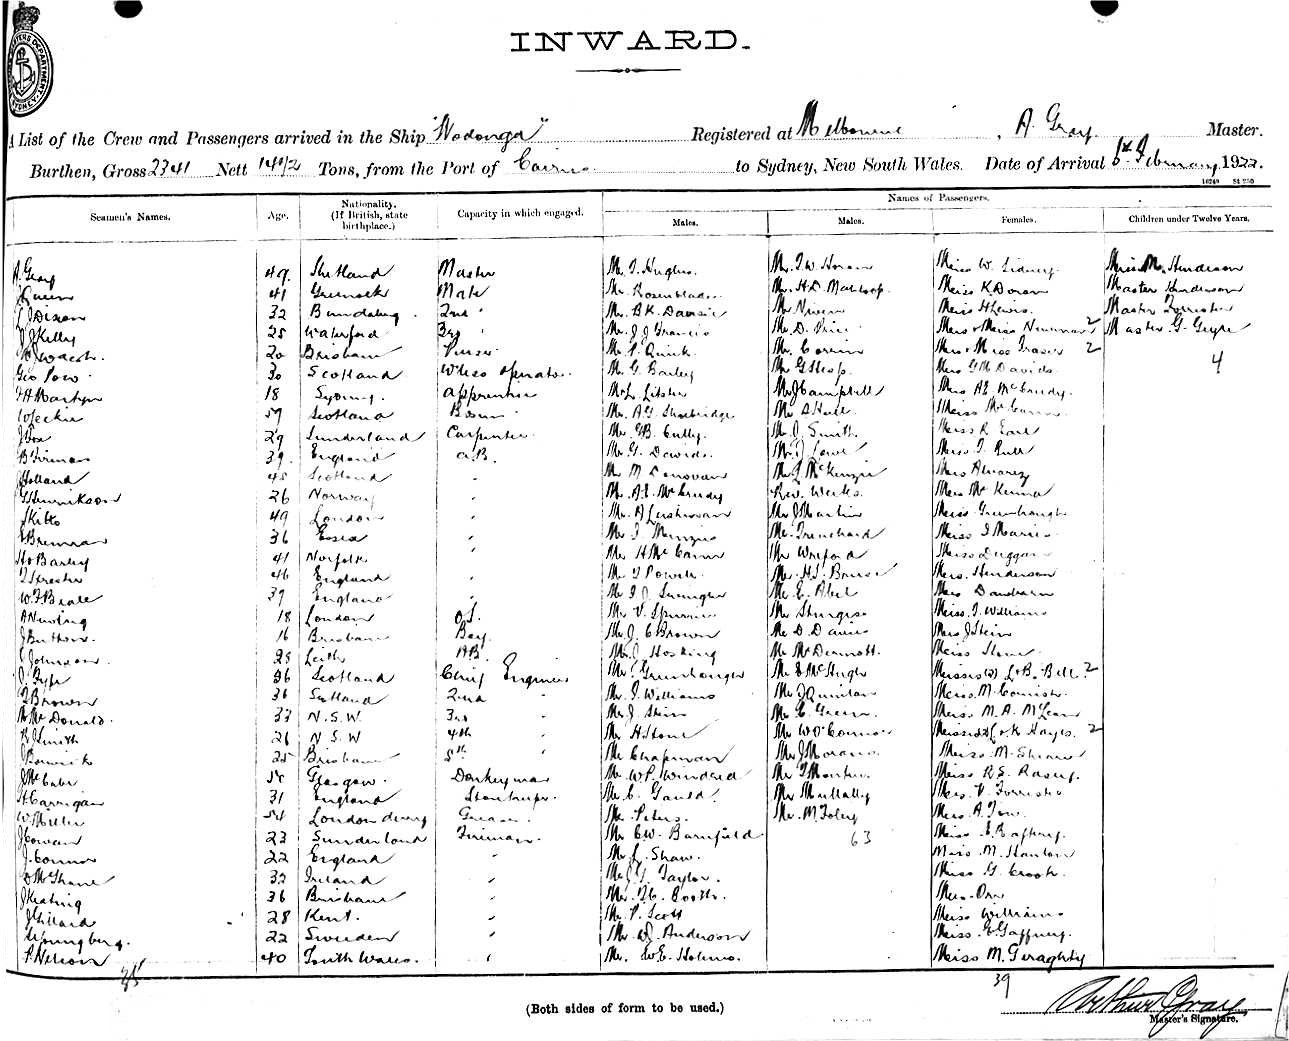 INWARD.
A List of the Crew and Passengers arrived in the Ship "Wodonga" Registered at Melbourne, A. Gray. Master.
Burthen, Gross 2341 Nett 1411/2 Tons, from the Port of Cairns. to Sydney, New South Wales. Date of Arrival 6th February 1922.
16249 St 250
Seamen's Names. Age. Nationality. (If British, state birthplace.) Capacity in which engaged. Names of Passengers.
Males. Males. Females. Children under Twelve Years.
A. Gray 49. Shetland Master Mr. T. Hughes. Mr. T. W. Horan Miss W. Sidney. Miss M. Henderson
41 Greenock Mate Mr. Rosenblade Mr. H. D. Miss K. Doran Master Henderson
J Dixon 32 Bundaberg 2nd " Mr. B K. Mr. Niven Miss H Lewis. Master Forrester
J Kelly 25 Waterford 3rd " Mr. J. J Francis Mr. D. Price Mrs & Miss Newman 2 Master G. Guyte
20 Brisbane Purser Mr. P. Quirk Mr. Corrin Mrs & Miss Fraser 2 4
Geo Pow. 30 Scotland W'less operator. Mr. G. Bailey Mr. G Heap. Miss G M Davids
F H Martyn 18 Sydney. Apprentice Mr L. Lister Mr J Campbell Mrs A E McCready.
W Jeckie 59 Scotland Bosun Mr. A G. Shorbridge Mr. S Hall. Miss McCann
J Fox 29 Sunderland Carpenter. Mr. F B. Cully. Mr. J. Smith. Miss R. Earl
B Firman 39. England A.B. Mr. G. Davids. Mr. J. Lowe Miss J. Rule
Holland 45 Scotland " Mr M Donovan Mr J McKenzie Miss Alvarez
Henrikson 26 Norway " Mr. A E. McCready Rev. Weeks. Miss McKenna
Skitts 49 London " Mr. A Gershevan Mr J Martin Miss Greenhaugh
Brennan 36 Essex " Mr. J Menzies Mr. Trenchard Miss J Marris
H Barley 41 Norfolk " Mr H McCann Mr Wreford Miss Duggan
J Forester 46 England " Mr J Powell. Mr. H J. Bruce Mrs. Henderson
W. F Beale 37 England " Mr J. J. Mr. E. Abel Miss Dandrean
A Newing 18 London O.S. Mr V. Mr Sturgess Miss. J. Williams
J Button. 16 Brisbane Boy. Mr. J. C Brown Mr D. Davies Miss J Stein
J Johnson. 25 Leith A.B. Mr. J Hosking Mr McDermott. Miss Stone
J. Fyfe 56 Scotland Chief Engineer Mr. Greenhauger Mr E McHugh Misses W & B. Bell. 2
J Brown 31 Scotland 2nd " Mr. J. Williams Mr J Quinlan Miss. M. Cornish.
M McDonald. 33 N.S.W. 3rd " Mr. J. Stein Mr. C. Green. Miss. M. A. McLean
R J Smith 26 N.S.W 4th " Mr H Stone Mr. W O'Connor Misses & K Hayes. 2
J Borwick 25 Brisbane 5th " Mr Chapman Mr. J Moran Miss M. Shean
J McCabe 50 Glasgow. Donkeyman Mr. W P. Windred Mr. J Morton. Miss R S. Rasey.
H Carrigan 31 England Storekeeper. Mr. C. Gauld. Mr Mullally Miss. V. Forrester
W Miller 54 Londonderry Greaser. Mr. Peters. Mr. M Foley Miss A. Tow.
J Cowan 23 Sunderland Fireman. Mr C W. Barnfield 63 Miss E. Gaffney.
J. Connor 22 England " Mr. L. Shaw. Miss M. Hanlon
D McShane 32 Ireland " Mr J. F. Taylor. Miss G. Crook.
J Keating 36 Brisbane " Mr. H. C. Booth. Mrs. Orr
J Gillard 28 Kent. " Mr. P. Scott Miss Williams
G Youngberg. 22 Sweden " Mr. W J. Anderson Miss. E Gaffney.
P Nelson 40 South Wales. " Mr. W. E. Holmes. Miss M. Geraghty
35 39
(Both sides of form to be used.)
Arthur Gray
Master's Signature.